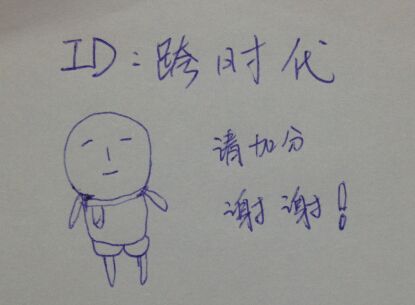 ID：跨时代
请加分
谢谢！